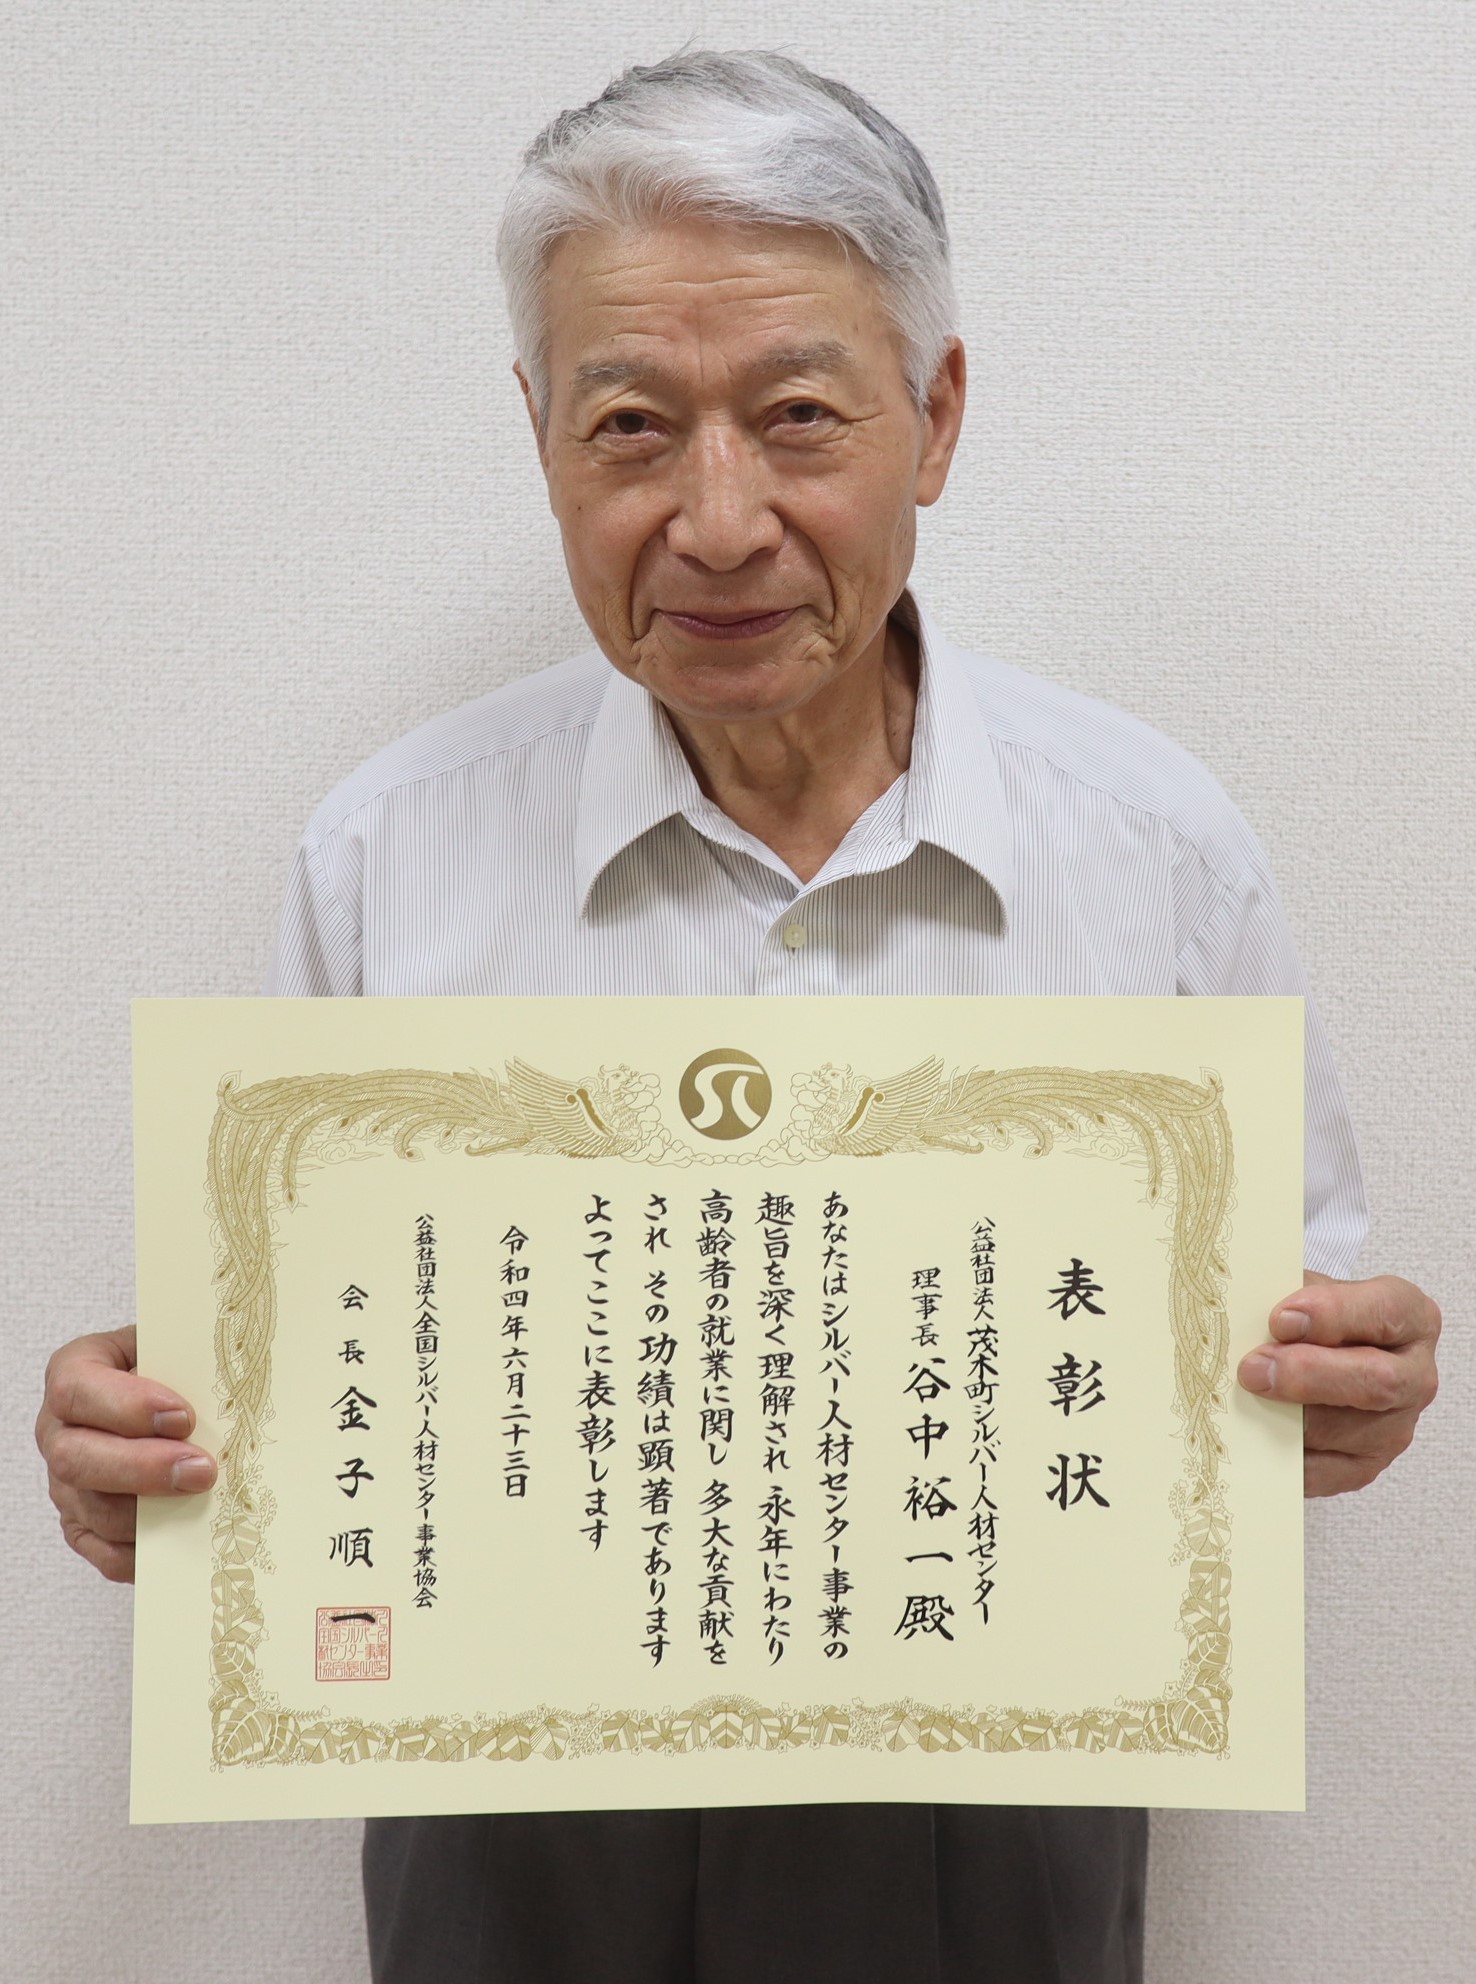 表彰状
公益社団法人茂木町シルバー人材センター
理事長 谷中裕一殿
あなたはシルバー人材センター事業の
趣旨を深く理解され 永年にわたり
高齢者の就業に関し 多大な貢献を
され その功績は顕著であります
よってここに表彰します
令和四年六月二十三日
公益社団法人全国シルバー人材センター事業協会
会長 金子順一